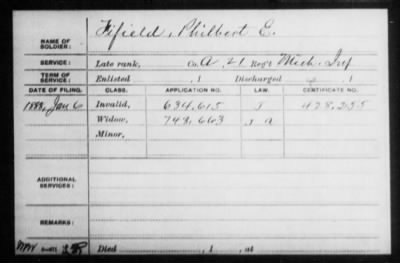 NAME OF SOLDIER: Fifield, Philbert E.
SERVICE: Late rank, Co. A, 21 Reg't Mich. Inf
TERM OF SERVICE: Enlisted , 1 Discharged , 1
DATE OF FILING. CLASS. APPLICATION NO. LAW. CERTIFICATE NO.
1888, Jan 6 Invalid, 634,615 428,255
Widow, 749,663
Minor,
ADDITIONAL SERVICES:
REMARKS:
Died , 1 , at